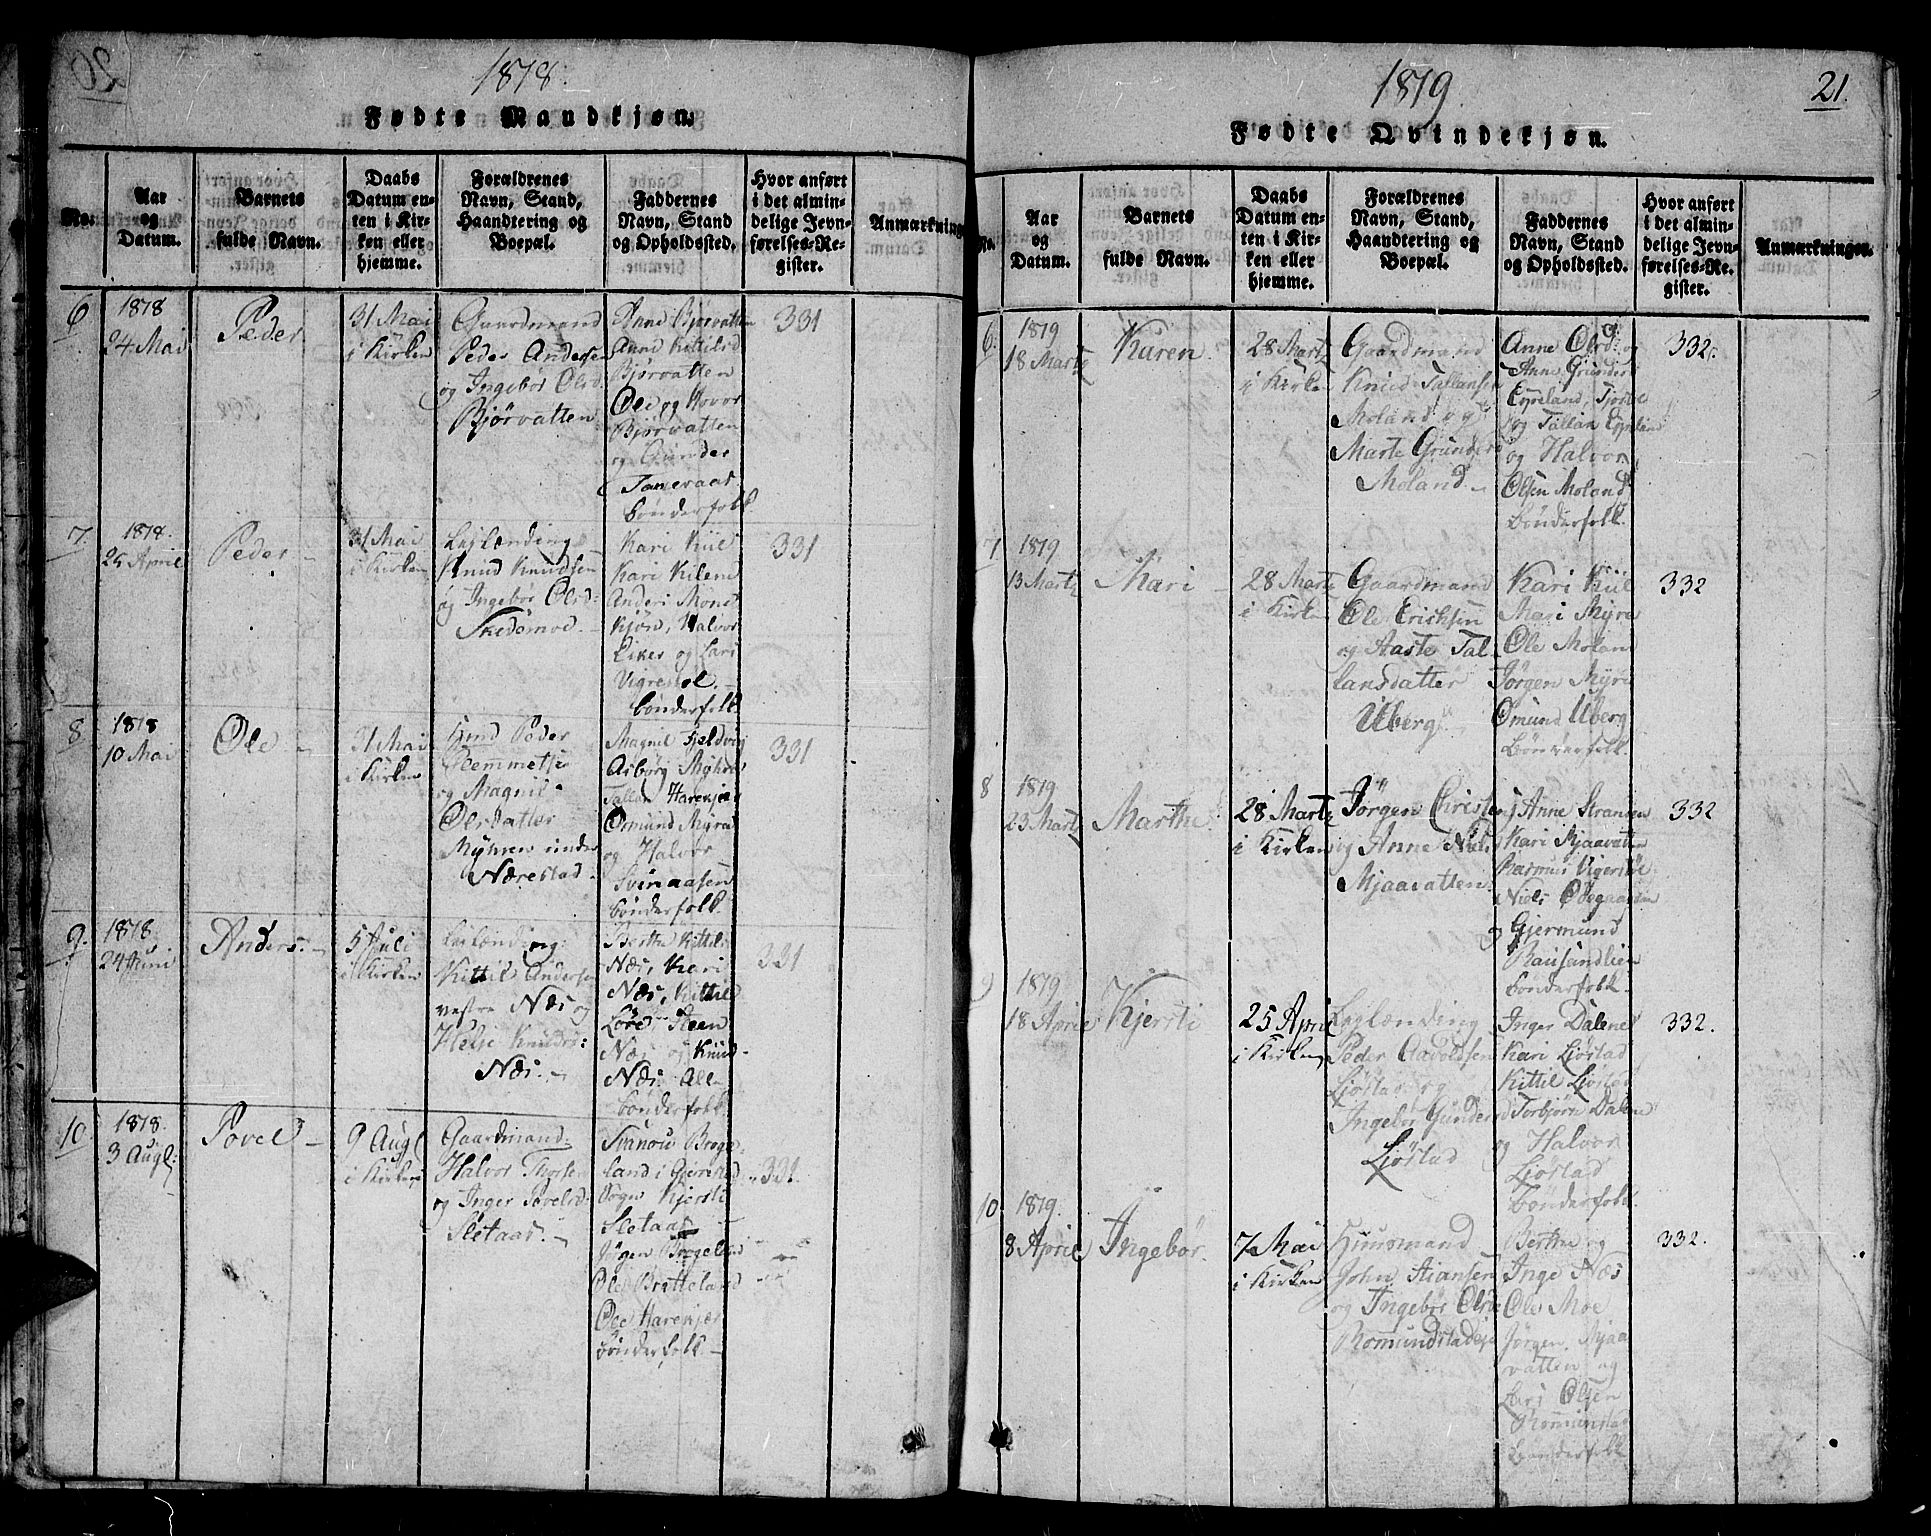 1818.
Fødte Mandkjøn.
No.
Aar
og
Datum.
Barnets
fulde Navn.
Daabs
Datum en-
ten i Kir-
ken eller
hjemme.
Forældrenes
Navn, Stand,
Haandtering og
Boepæl.
Faddernes
Navn, Stand
og Opholdssted.
Hvor anført
i det almin-
delige Jevn-
førelses-Re-
gister.
Anmærkninger
6
1818
24 Mai
Peder
31 Mai
i Kirken
Gaardmand
Peder Andersen
og Ingebor Olsd.
Bjørvatten
Anne Bjørvatten
Anne Kittilsd
Bjørvatten
Ole og Hovor
Bjørvatten
og Gunder
bønderfolk
331
7.
1818.
25 April
Peder
31 Mai
i Kirken
Leylænding
Knud Knudsen
og Ingebor Olsd:
Skedsmoe
Kari Kiil
Kari Kilene
Kjøn, Halvor
og Lars
bønderfolk
331
8
1818
10 Mai
Ole
31 Mai
i Kirken
Peder
og Magnil
Olsdatter
Myhren under
Nærestad
Magnil Fjeldvig
Asbørg Myhren
Tallov Harekjær
Omund Myra
og Halvor
Svinaasen
bønderfolk
331
9.
1818.
24 Juni
Anders.
5 Juli
i Kirken
Leylænding:
Kittil Andersen
vestre Næs og
Helje Knudsd:
Næs.
Berthe Kittils
Næs, Kari
Næs, Kittil
Steen
Næs og Knud
Næs. Alle
bønderfolk
331
10.
1818.
3 Augl:
Povel
9 Augl
i Kirken
Gaardmand:
Halvor
og Inger Povelsd:
Sletaas.
land i Gjerestad
Sogn Kjersti
Sletaas
Jøgen
Ole Bratteland
Ole Harekjær
bønderfolk
331
1819.
21.
Fødte Qvindekjøn.
No.
Aar
og
Datum.
Barnets
fulde Navn.
Daabs
Datum en-
ten i Kir-
ken eller
hjemme.
Forældrenes
Navn, Stand,
Haandtering og
Boepæl.
Faddernes
Navn, Stand
og Opholdssted.
Hvor anført
i det almin-
delige Jevn-
førelses-Re-
gister.
Anmærkninger.
6.
1819
18 Martz
Karen
28 Martz
i Kirken
Gaardmand
Knud Tallansen
Moland og
Marte Gunders
Moland
Anne Olsd: og
Anne Gunders
og Tallan
og Halvor
Olsen Moland
bønderfolk
332.
7
1819
13 Martz
Mari
28 Martz
i Kirken
Gaardmand
Ole Ericksen
og Aaste Tal
lansdatter
Uberg.
Kari Kiil
Mari Myra
Ole Molan
Jørgen Myra
Omund Uberg
Bønderfolk.
332
8
1819
23 Martz
Marthe
28 Martz
i Kirken
Jørgen Christens
og Anne Niels
Mjaavatten
Anne Stransen
Kari Mjaavatten
Rasmus
Niels Ødegaarden
og Gjermund
Rausandlien
bønderfolk
332
9
1819
18 April
Kjersti
25 April
i Kirken
Leylænding
Peder Aavoldsen
Ljøstad og
Ingebor Gundersd
Ljøstad
Inger Dalene
Kari Ljøstad
Kittil Ljøstad
Torbjørn Dalen
og Halvor
Ljøstad
Bønderfolk
332.
10.
1819.
8 April
Ingebor
7 Mai
i Kirken
Huusmand
John
og Ingebor Olsd
Romundstadeje
Berthe og
Inge Næs
Ole Moe
Jørgen Mjaa
vatten og
Lars Olsen
bønderfolk
332.